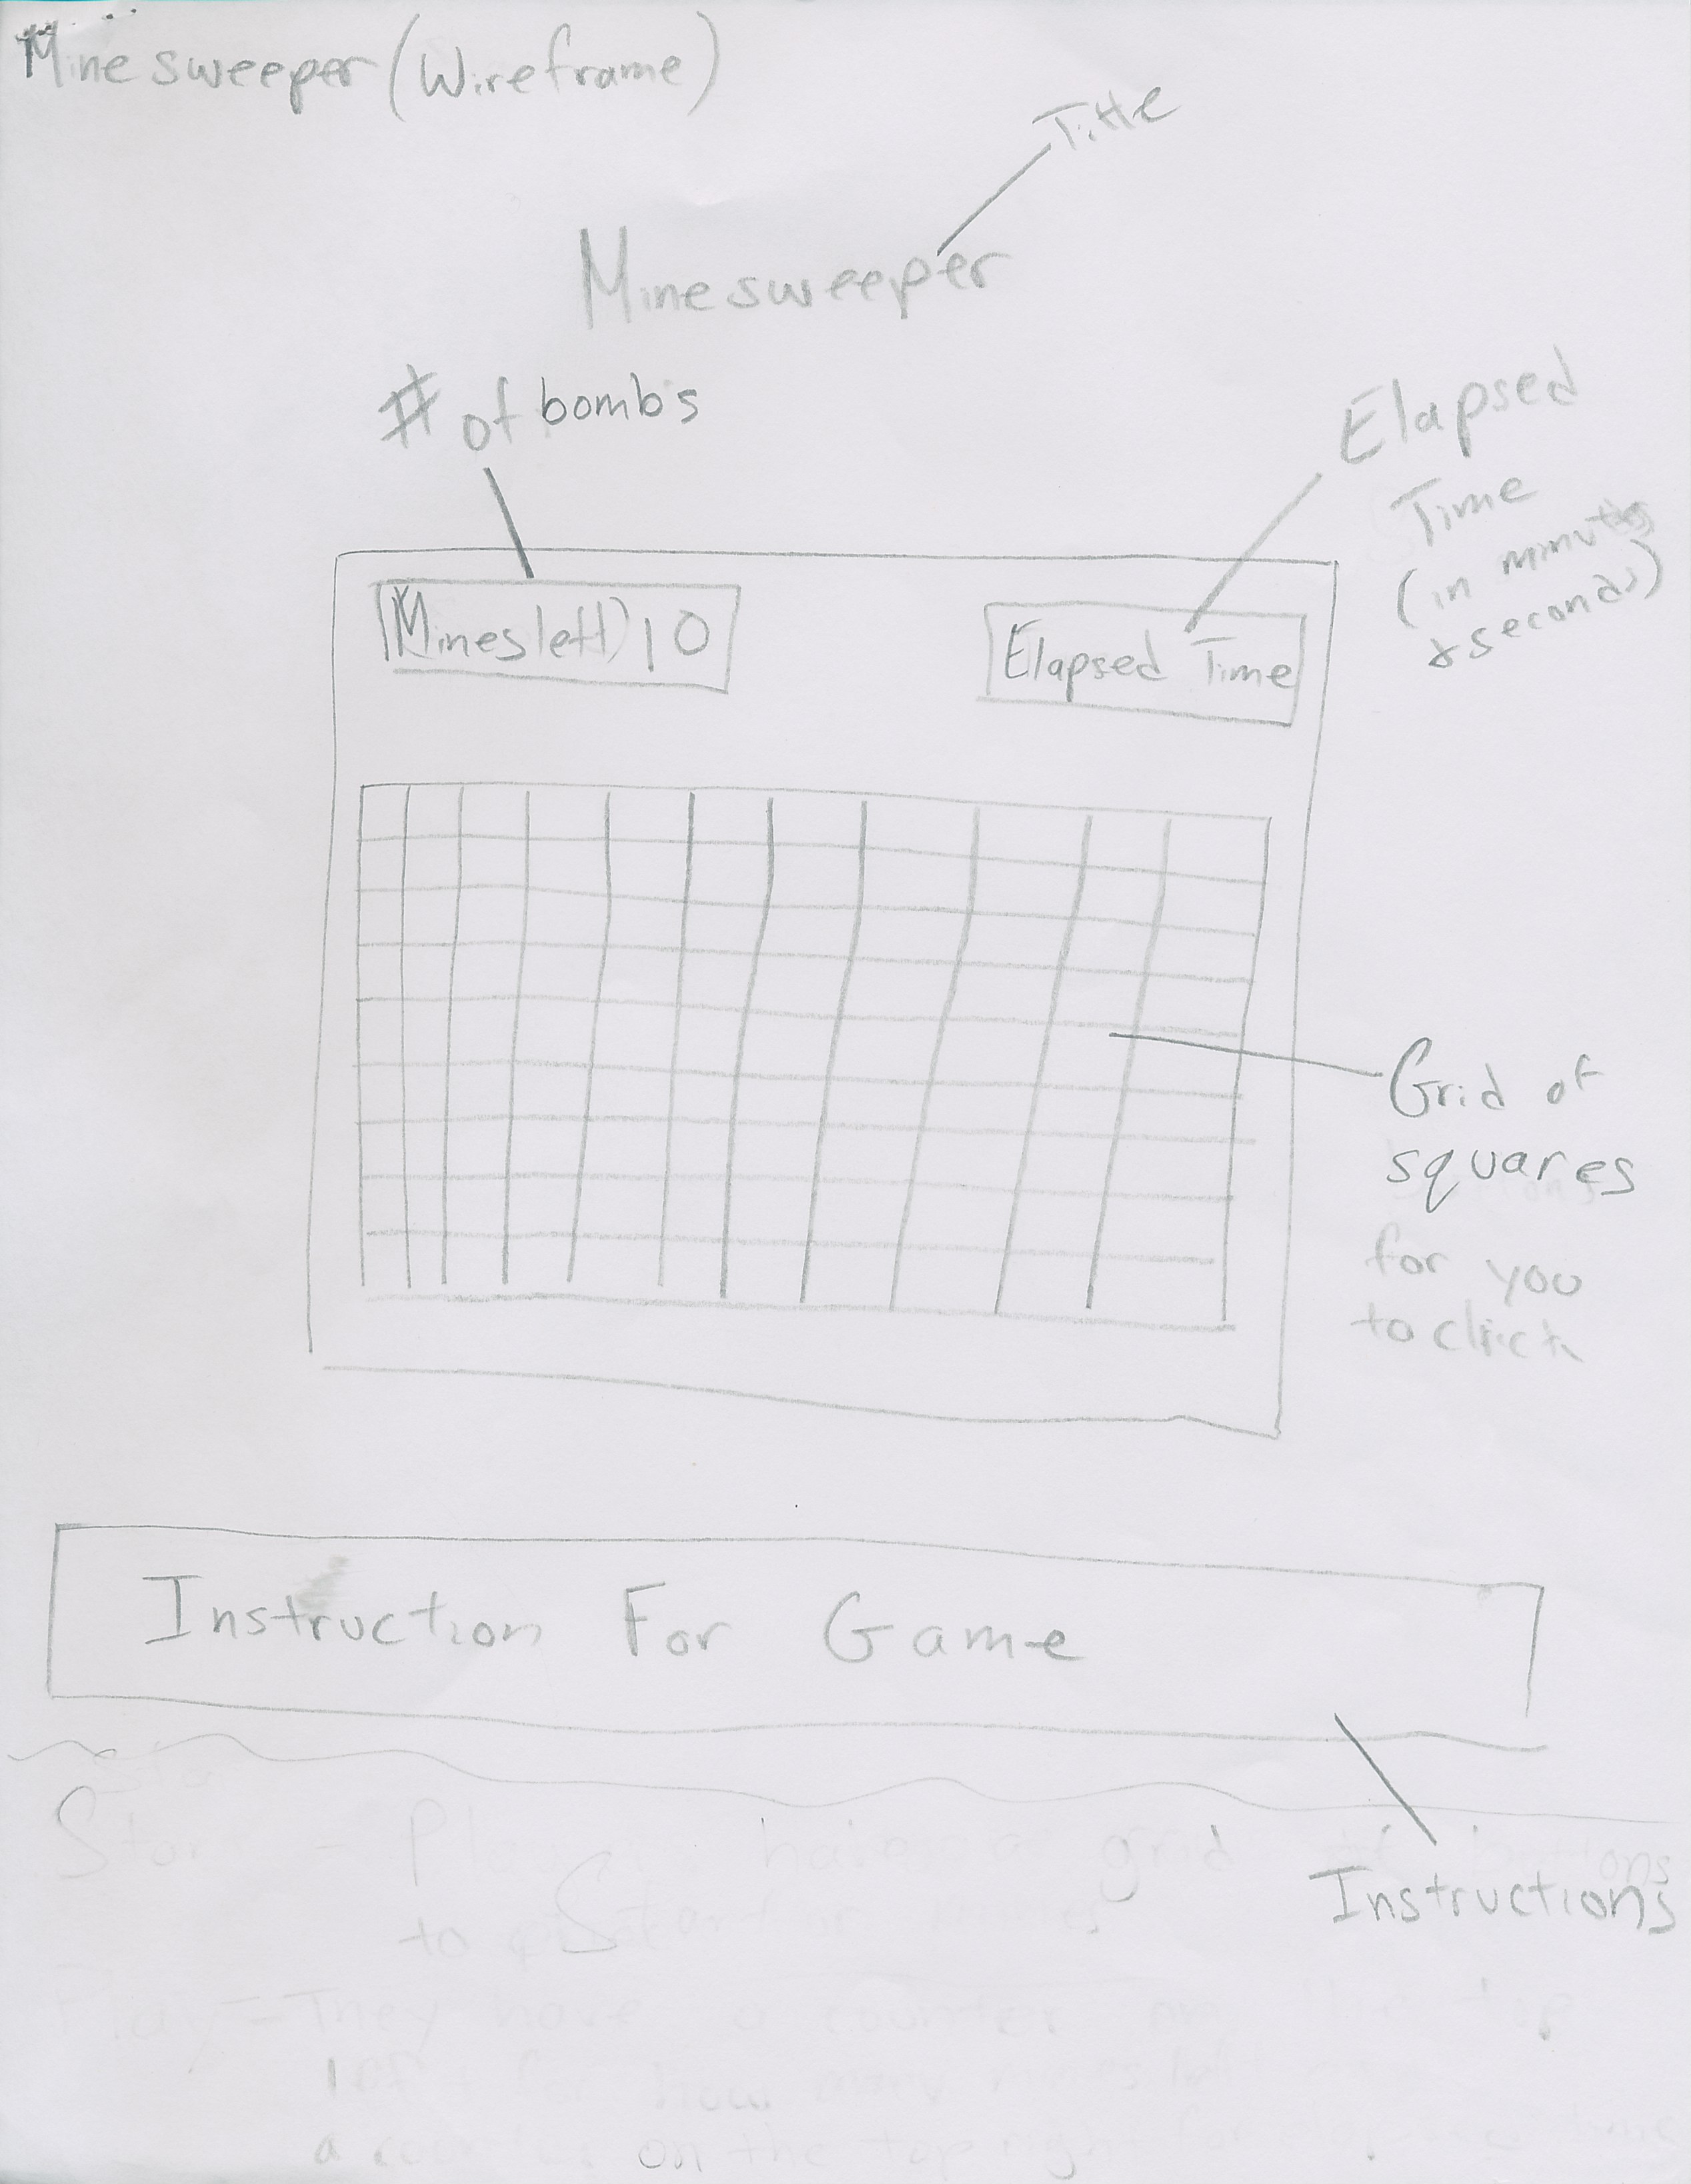 Minesweeper (Wireframe)
Title
Minesweeper
# of bombs
Elapsed
Time
(in minutes
& seconds)
Mines left) 10
Elapsed Time
Grid of
squares
for you
to click
Instruction For Game
Instructions
grid
to
Play - They have a counter on the top
for how many mines left
a on the top